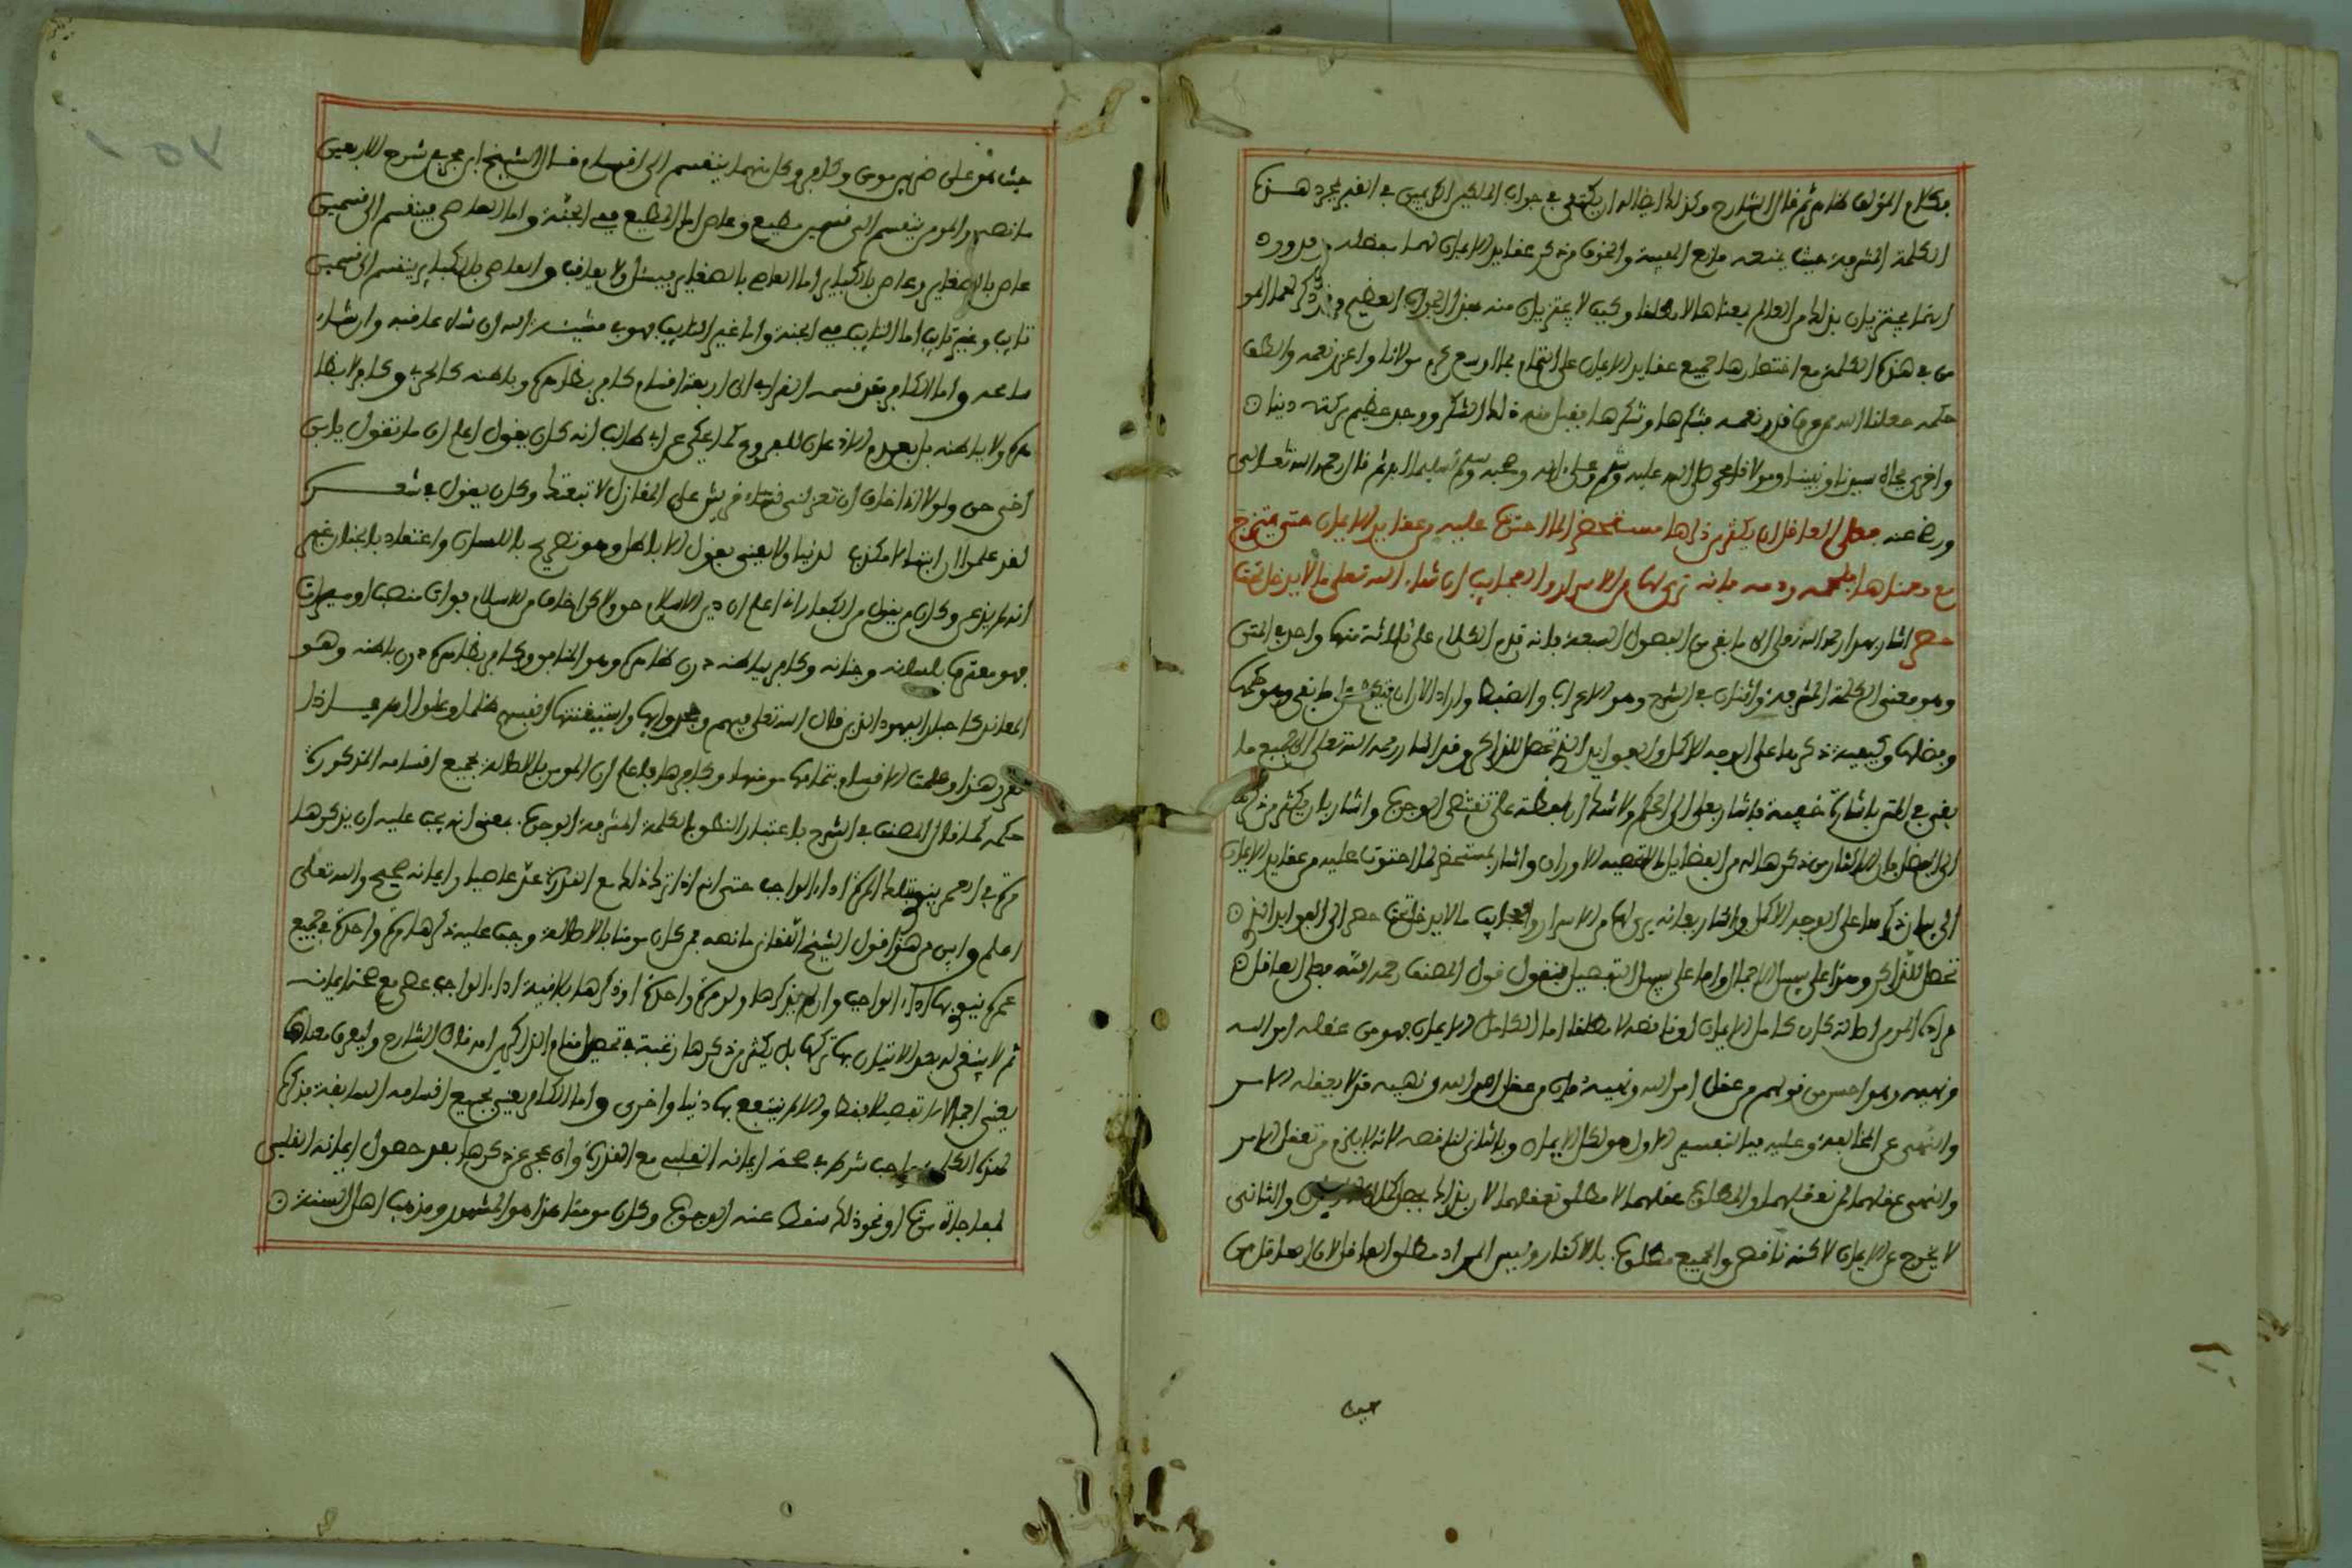 بكلام المؤلف هنا ثم قال الشارح وكذلك ايضا له ان يكتفى في جواب الملكين الكريمين في القبر بمجرد هذه
الكلمة المشرفة حيث يمنعه مانع الهيبة والخوف من ذكر عقايد الايمان لهما مفصلة
انهما يجتزيان بذلك من العالم بمعناها لا مطلقا وكيف لا يجتزيان منه بهذا الجواب العظيم وقد ذكر لهما المو
من في هذه الكلمة مع اختصارها جميع عقايد الايمان على التمام فما اوسع كرم مولانا واغزر نعمه والطف
حكمه جعلنا الله ممن عرف قدر نعمه فشكرها وشكرها فقبل منه ذلك الشكر ووجد عظيم بركته دنيا
واخرى بجاه سيدنا ونبينا ومولانا محمد صلى الله عليه وسلم وعلى اله وصحبه وسلم تسليما ثم قال رحمه الله تعالى
ورضي عنه فعلى العاقل ان يكثر من ذكرها مستحضرا لما احتوت عليه من عقايد الايمان حتى تمتزج
مع معناها بلحمه ودمه فانه يرى لها من الاسرار والعجايب ان شاء الله تعلى ما لا يدخل تحت
حصر اشار بهذا رحمه الله تعلى الى ما بقي من الفصول السبعة فانه قدم الكلام على ثلاثة منها واحد في المتن
وهو معنى الكلمة المشرفة واثنان في الشرح وهو الاعراب والضبط واراد الان ان يتكلم على ما بقي وهو حكمها
وفضلها وكيفية ذكرها على الوجه الاكمل والفوايد التي تحصل للذاكر وقد اشار رحمه الله تعلى الى جميع ما
بقي في المتن باشارة خفية فاشار بعلى الى الحكم ولا شك ان لفظة على تقتضي الوجوب واشار بان يكثر من ذكرها
الى الفضل فان الاكثار من ذكرها له من الفضايل ما لا تحصيه الاوراق واشار بمستحضرا لما احتوت عليه من عقايد الايمان
الى بيان ذكرها على الوجه الاكمل واشار بفانه يرى لها من الاسرار والعجايب ما لا يدخل تحت حصر الى الفوايد التي
تحصل للذاكر وهذا على سبيل الاجمال واما على سبيل التفصيل فنقول قول المصنف رحمه الله فعلى العاقل
مراده المومن اطلقه كان كامل الايمان او ناقصه لا مطلقا اما الكامل الايمان فهو من عقله امر الله
ونهيه وهو احسن من قولهم من عقل امر الله ونهيه فان من عقل امر الله ونهيه قد لا يعقله الامر
والنهي عن المخالفة وعليه فيا لتقسيم الاول هو لكل الايمان وبالثاني لناقصه لانه لا يلزم من تعقل الامر
والنهي عقلهما لمن تعقلهما والمطلوب عقلهما لا مطلق تعقلهما لان بذلك يحصل كمال والثاني
لا يخرج عن الايمان لاكنه ناقص والجميع مطلوب بالاكثار وليس المراد مطلق العاقل لان العاقل من
حيث
حيث هو على ضربين مومن وكافر وكل منهما ينقسم الى اقسام قال الشيخ ابن حجر في شرح الاربعين
ما نصه والمومن ينقسم الى قسمين مطيع وعاص اما المطيع ففي الجنة واما العاصي فينقسم الى قسمين
عاص بالصغاير وعاص بالكباير اما العاصي بالصغاير فيسئل ولا يعاقب والعاصي بالكباير ينقسم الى قسمين
تايب وغير تايب اما التايب ففي الجنة واما غير التايب فهو في مشيئة الله ان شاء عاقبه وان شاء
سامحه واما الكافر فقد قسمه القرافي الى اربعة اقسام كافر بظاهره وباطنه كالحربي وكافر لا بظا
هره ولا بباطنه بل بعدم الاذعان للفروع كما حكي عن ابي طالب انه كان يقول اعلم ان ما تقول يا ابن
اخي حق ولولا اني اخاف ان تعيرني نساء قريش على المغازل لاتبعتك وكان يقول في شعره
لقد علموا ان ابننا لا مكذب لدينا ولا يعنى بقول الاباطل وهو تصريح باللسان واعتقاد بالجنان غير
انه لم يذعن وكان من يقول من الكفار انا اعلم ان دين الاسلام حق ولاكن اخاف من الاسلام فوات منصب او ميراث
فهو معترف بلسانه وجنانه وكافر بباطنه دون ظاهره وهو المنافق وكافر بظاهره دون باطنه وهو
المعاند كاحبار اليهود الذين قال الله تعلى فيهم وجحدوا بها واستيقنتها انفسهم ظلما وعلوا فاذا
تقرر هذا وعلمت الاقسام بتمامها مومنها وكافرها فاعلم ان المومن بالاصالة بجميع اقسامه المذكورة
حكمه كما قال المصنف في الشرح باعتبار النطق بالكلمة المشرفة الوجوب بمعنى انه يجب عليه ان يذكرها
مرة في العمر ينوي بتلك المرة اداء الواجب حتى انه اذا ترك ذلك مع القدرة عد عاصيا وايمانه صحيح والله تعلى
اعلم واين من هذا قول الشيخ اللقاني ما نصه من كان مومنا بالاصالة وجب عليه ذكرها مرة واحدة في جميع
عمره ينوي بها اداء الواجب وان لم يذكرها ولو مرة واحدة او ذكرها بلا نية اداء الواجب عصى مع صحة ايمانه
ثم لا ينبغي له بعد الاتيان بها تركها بل يكثر من ذكرها رغبة في تحصيل مقام الذاكرين اه قال الشارح وليعرف معناها
يعني اجمالا لا تفصيلا فقط والا لم ينتفع بها دنيا واخرى واما الكافر يعني بجميع اقسامه السابقة فذكره
لهذه الكلمة واجب شرط في صحة ايمانه القلبي مع القدرة وان عجز عن ذكرها بعد حصول ايمانه القلبي
لمفاجاة موت او نحو ذلك سقط عنه الوجوب وكان مومنا هذا هو المشهور ومذهب اهل السنة